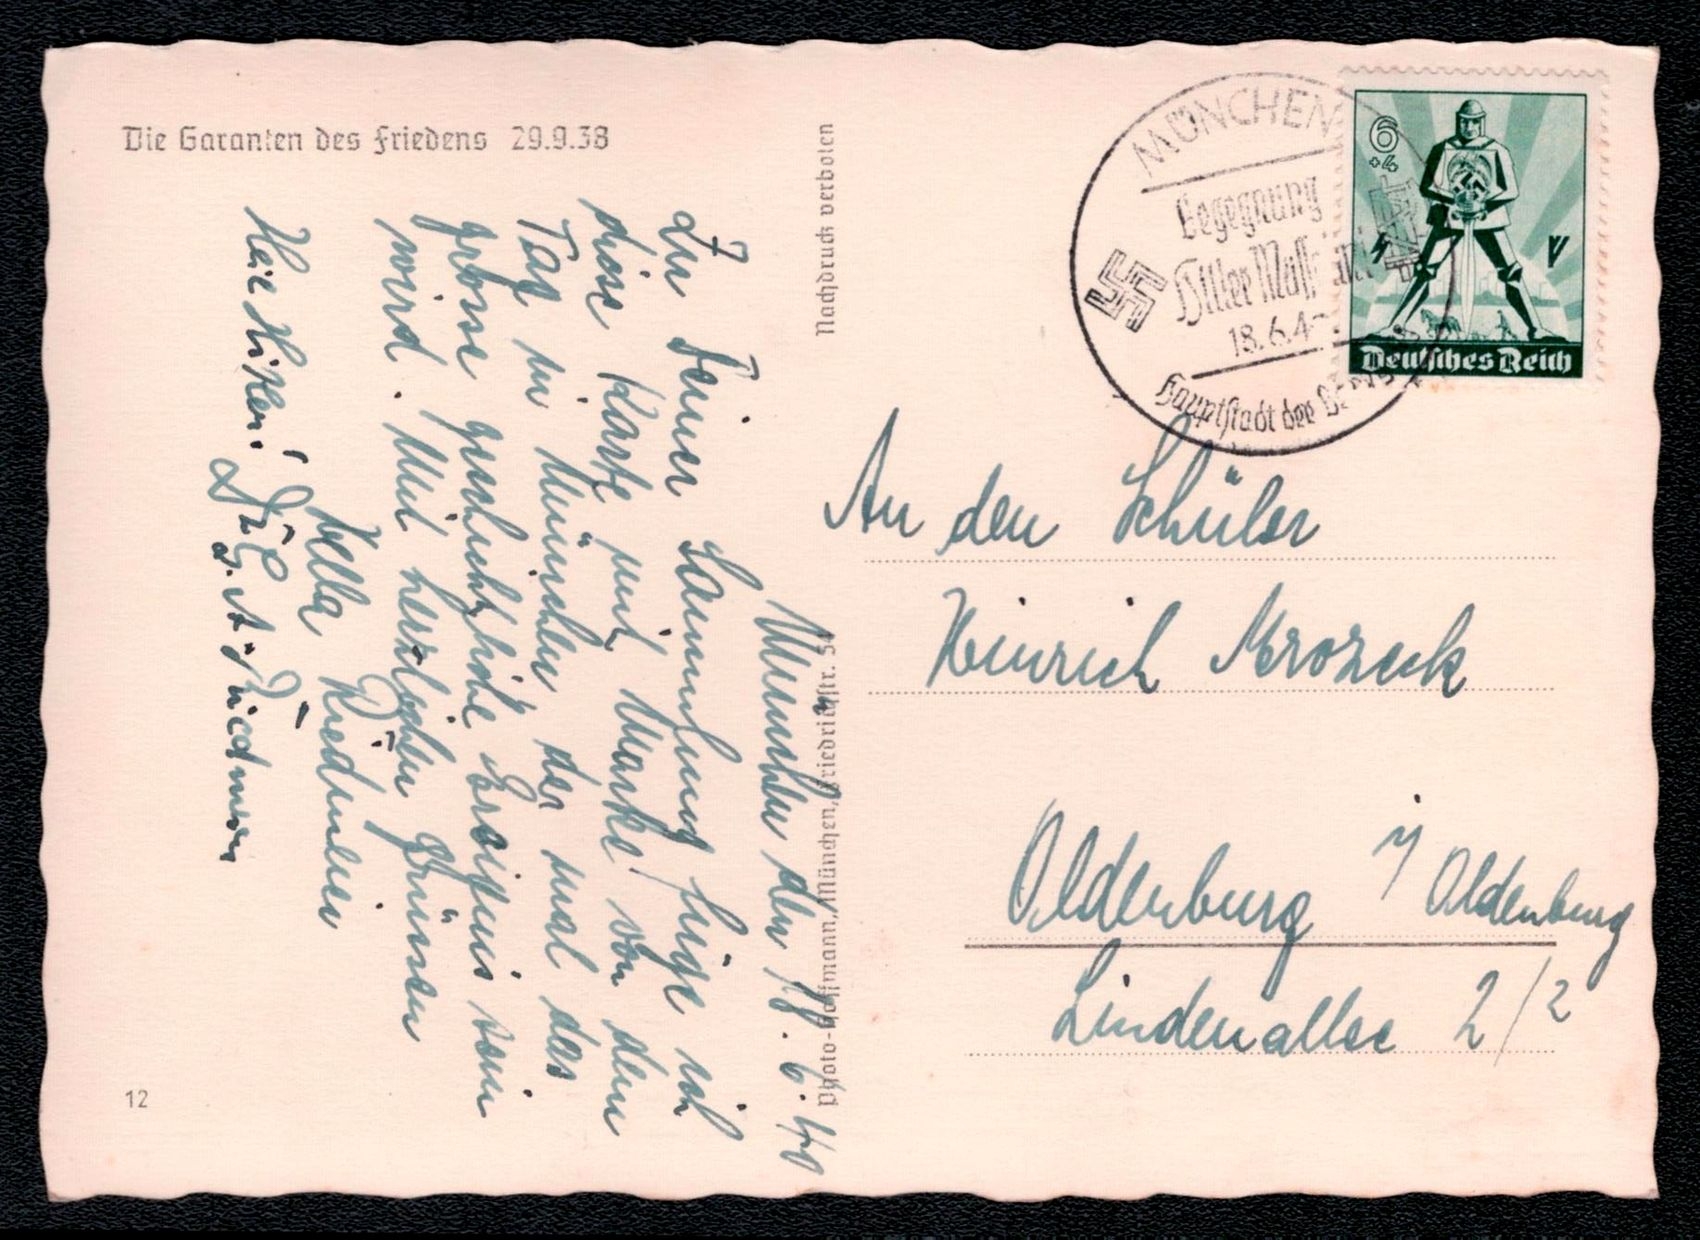 Die Garanten des Friedens 29.9.38
München den 18.6.40
Zu Deiner Sammlung füge ich
diese Karte mit Marke von dem
Tag in München, der mal das
grosse geschichtliche Ereignis sein
wird. Mit herzlichen Grüssen
Heil Hitler!
12
Nachdruck verboten
Photo-Hoffmann, München, Friedrichstr. 34
MÜNCHEN
Begegnung
Hitler Mussolini
18.6.4
Hauptstadt der
6
+4
Deutsches Reich
An den Schüler
Heinrich Mrozeck
Oldenburg i/Oldenburg
Lindenallee 2/2